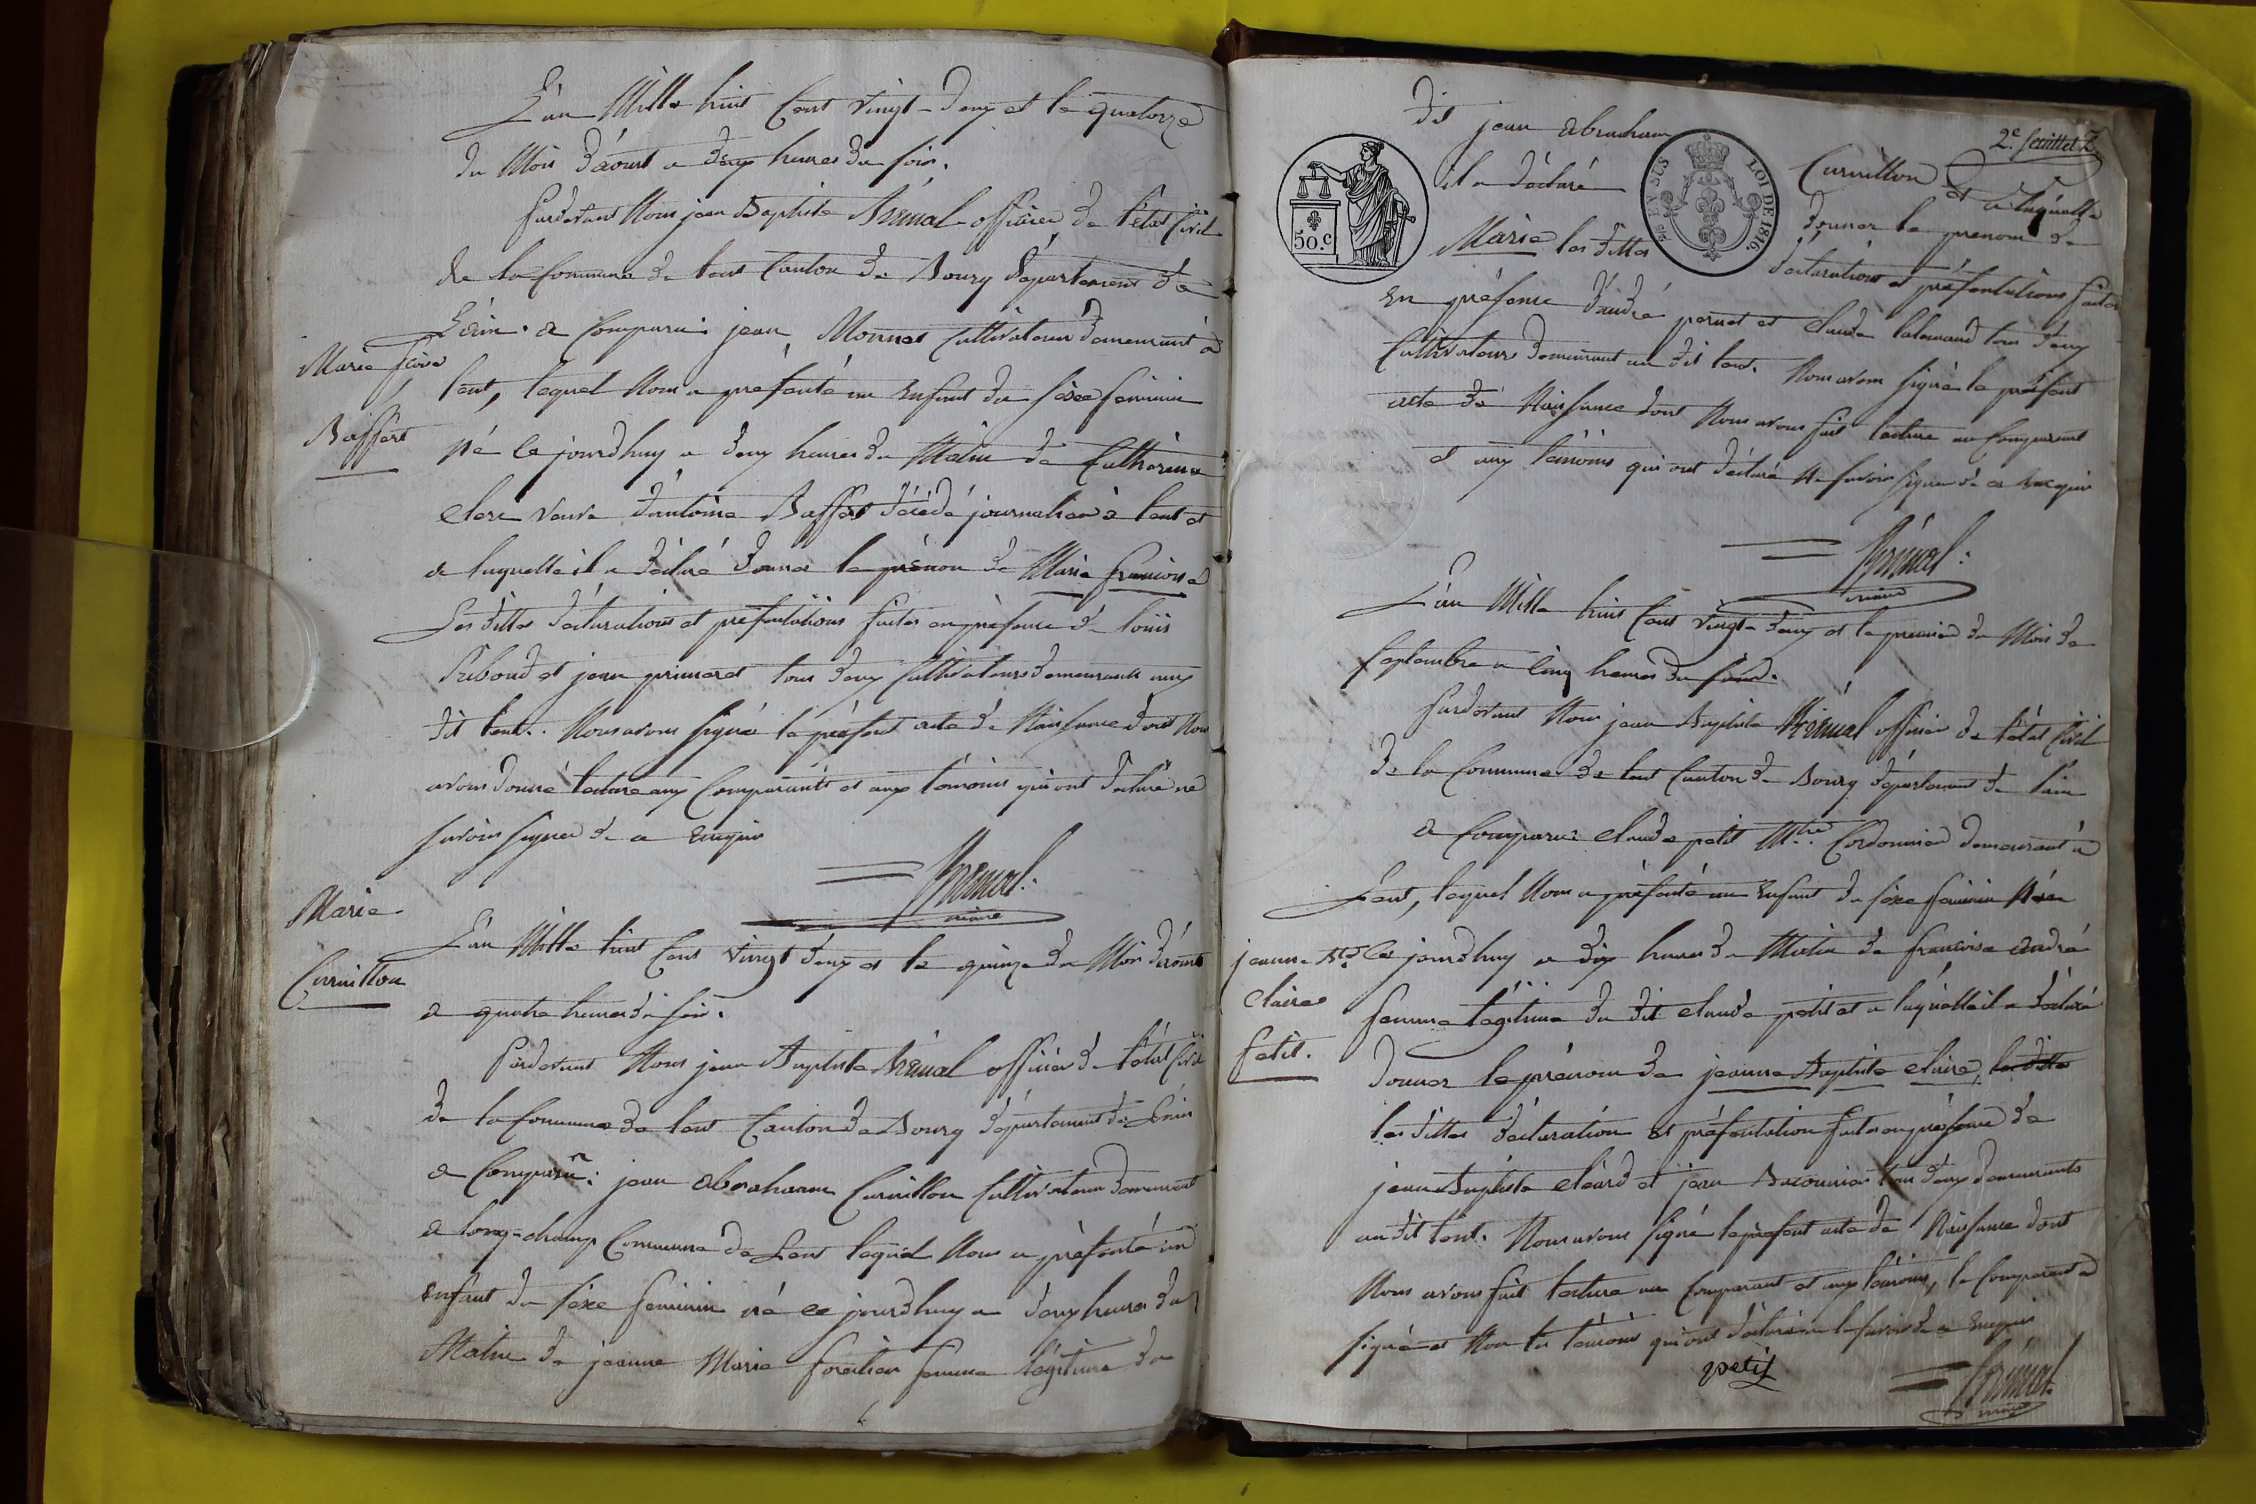 L'an Mille huit Cent vingt-deux et le quatorze
du Mois d'aoust a deux heures du soir.
Pardevant Nous jean Baptiste officier de l'état Civil
de la Commune de lent Canton de Bourg département de
L'ain. a Comparu: jean Monnet Cultivateur demeurant à
Marie
lent, lequel Nous a présenté un Enfant du sexe feminin
Baffert
Né ce jourdhuy a deux heures du Matin de Catherine
Clerc veuve d'antoine Baffert décédé journalier à lent et
a laquelle il a déclaré donner le prénom de Marie francoise
Les dittes déclarations et présentations faites en présence de louis
et jean tous deux Cultivateurs demeurants
dit lent. Nous avons signé le présent acte de Naissance dont Nous
avons donné lecture aux Comparants et aux témoins qui ont déclaré ne
savoir signer de ce Enquis
maire
Marie
Curvillon
L'an Mille huit Cent vingt deux et le quinze du Mois d'aoust
a quatre heures du soir.
Pardevant Nous jean Baptiste officier de l'état Civil
de la Commune de lent Canton de Bourg département de L'ain
a Comparu: jean abraham Curvillon Cultivateur demeurant
a long-champ Commune de Lent lequel Nous a présenté un
Enfant du sexe feminin né ce jourdhuy a deux heures du
Matin de jeanne Marie femme légitime du
2e. feuillet
dit jean abraham Curvillon et a laquelle
il a déclaré donner le prenom de
Marie les dittes déclarations et présentations faites
50.c
LOI DE 1816.
En présence d'andré pernet et claude lalemand tous deux
Cultivateurs demeurant au dit lent. Nous avons signé le présent
acte de Naissance dont Nous avons fait lecture au Comparant
et aux témoins qui ont déclaré Ne savoir signer de ce Enquis
maire
L'an Mille huit Cent vingt deux et le premier du Mois de
septembre a Cinq heures du soir.
Pardevant Nous jean Baptiste officier de l'état Civil
de la Commune de lent Canton de Bourg département de l'ain
a Comparu: claude petit Mtre. Cordonnier demeurant à
Lent, lequel Nous a présenté un Enfant du sexe feminin Née
jeanne Bte
Ce jourdhuy a dix heures du Matin de francoise andré
Claire
femme légitime du dit claude petit et a laquelle il a déclaré
Petit.
donner le prénom de jeanne Baptiste claire, les dittes
les dittes déclaration et présentation faites en présence de
jean Baptiste et jean tous deux demeurants
au dit lent. Nous avons signé le présent acte de Naissance dont
Nous avons fait lecture au Comparant et aux témoins, le Comparant a
signé et Non les témoins qui ont déclaré ne le savoir de ce Enquis
petit
maire